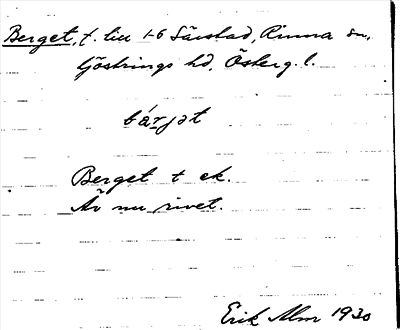 Berget, t. lill 1-6 Särstad, Rinna sn,
Göstrings hd, Österg. l.
bárjət
Berget t ek.
Är nu rivet.
Erik Alm 1930